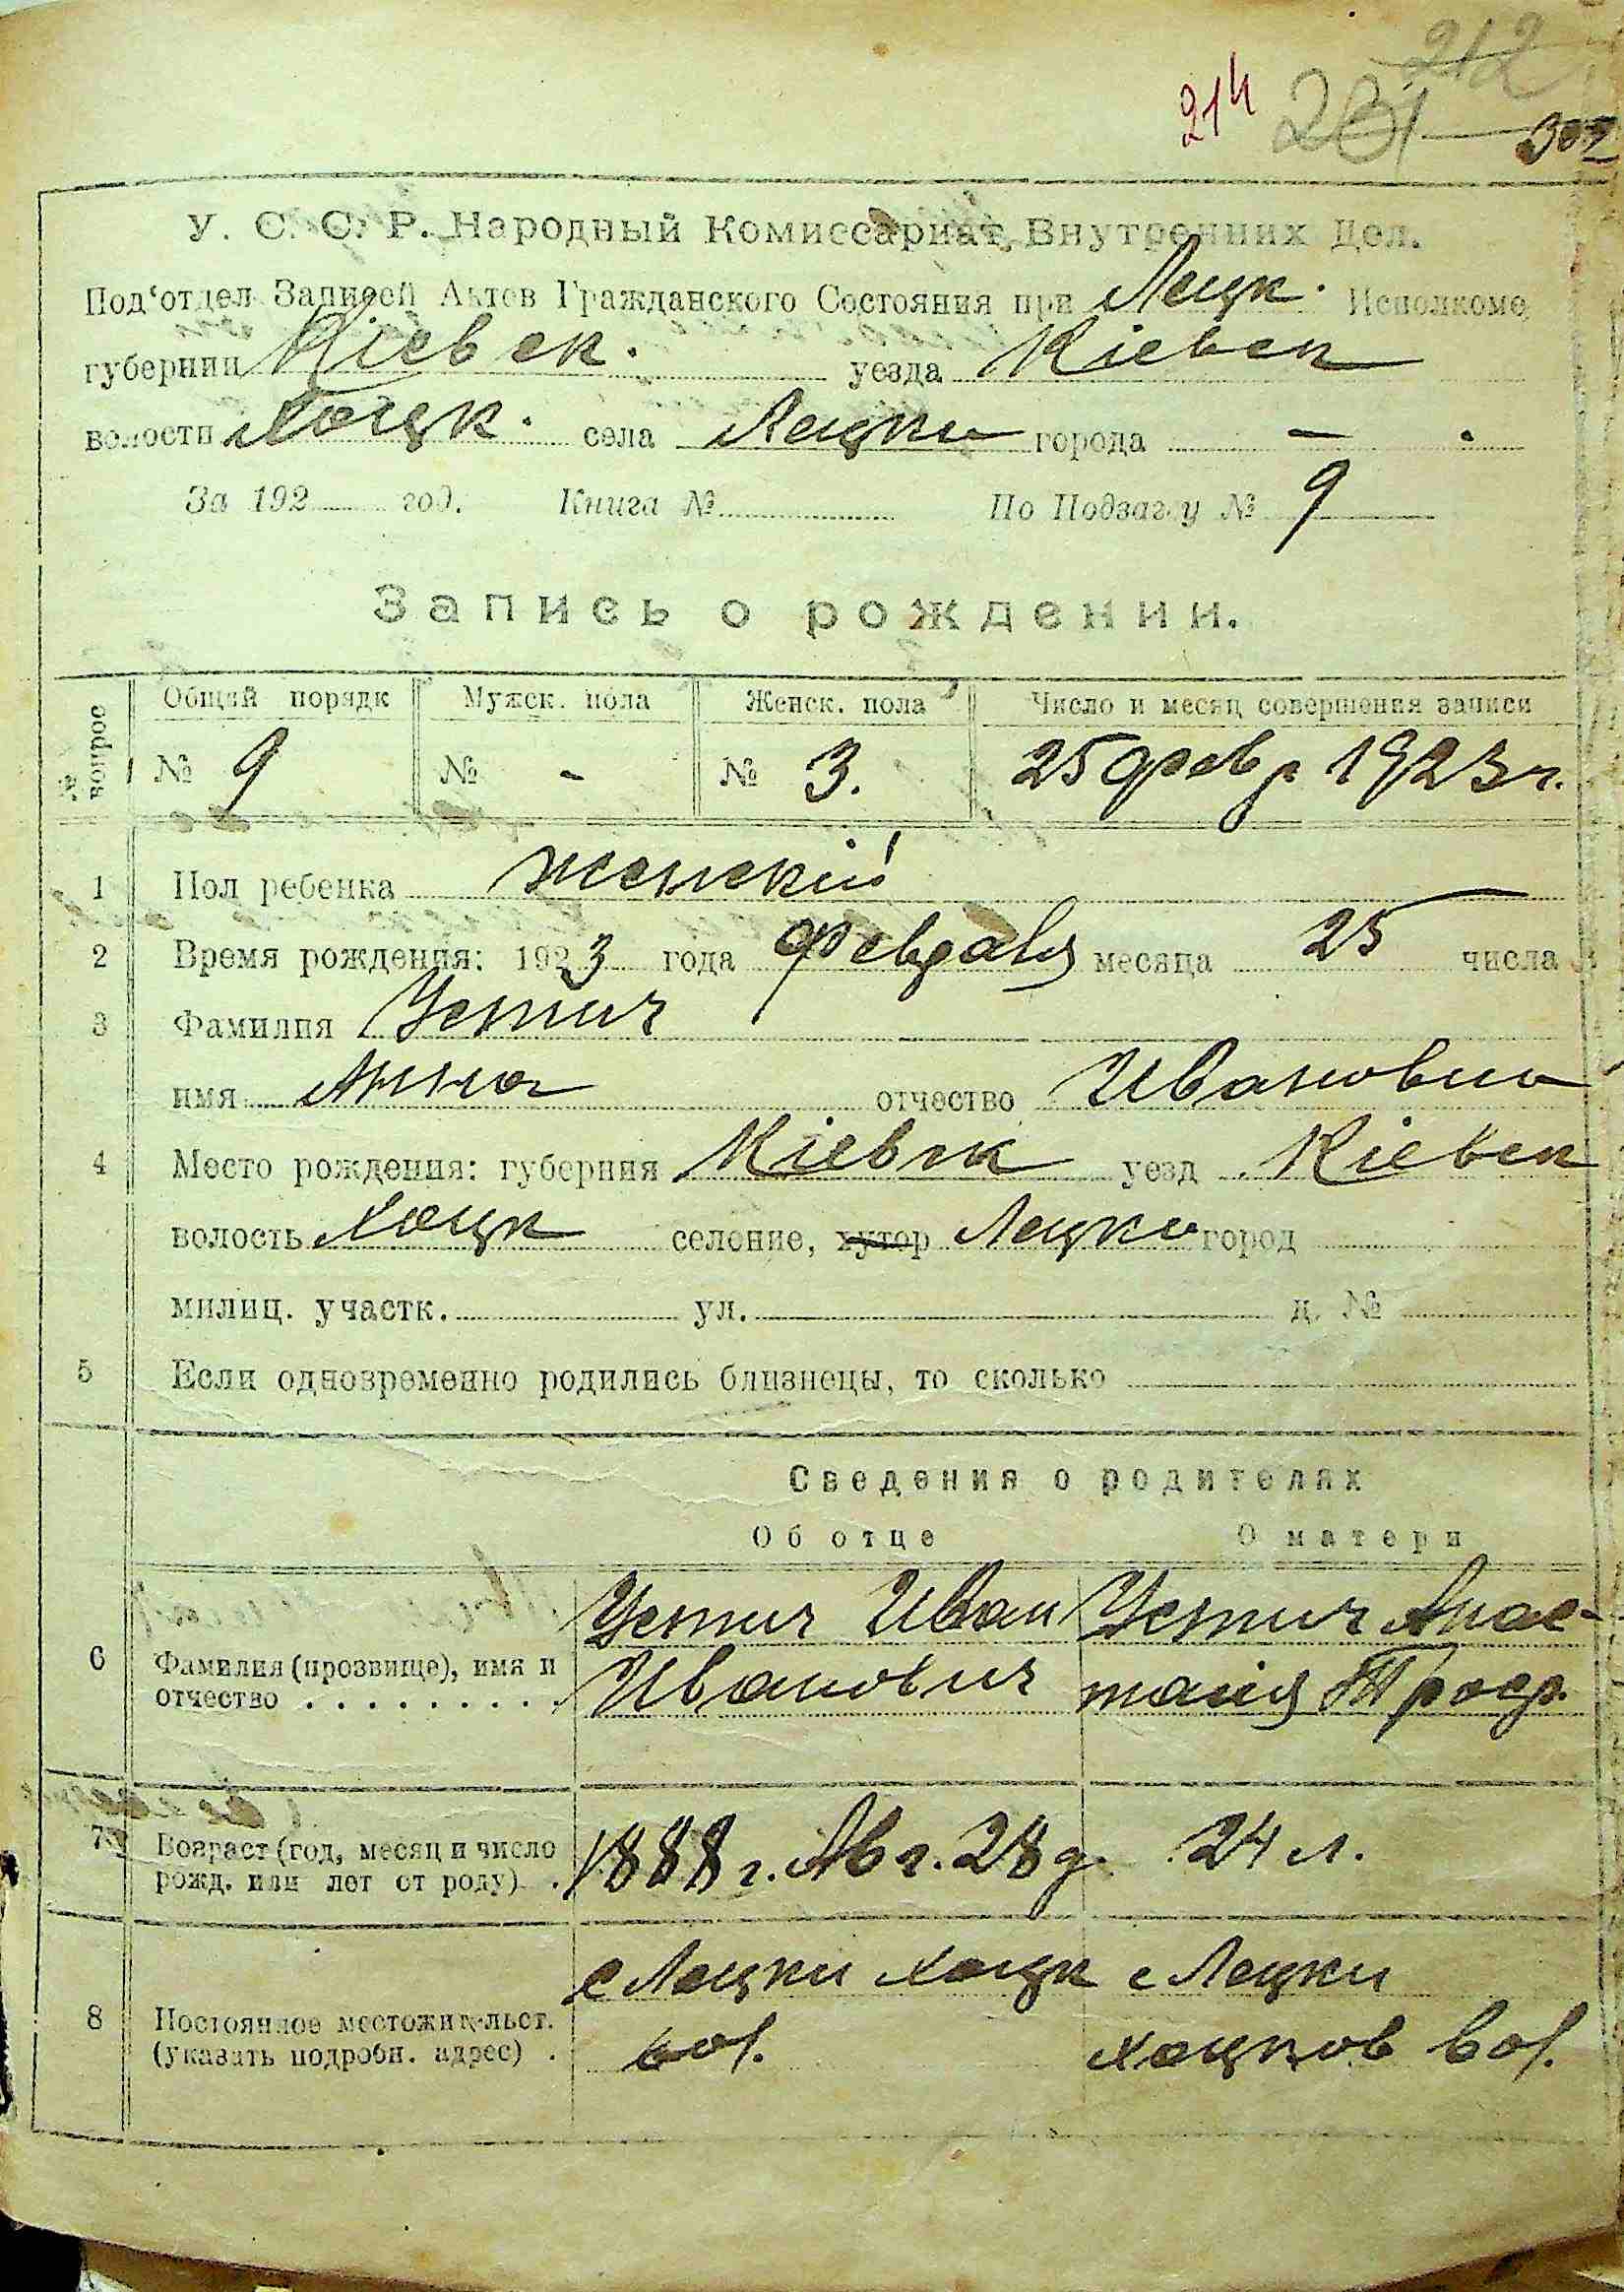 214 231 212
302
У. С. С. Р. Народный Комиссариат Внутренних Дел.
Под‘отдел Записей Актов Гражданского Состояния при Лецк. Исполкоме
губернии Кіевск. уезда Кіевск
волости Хоцк. села Лецки города - .
За 192 год. Книга № По Подзаг.у № 9
Запись о рождении.
№ вопрос
Общий порядк Мужск. пола Женск. пола Число и месяц совершения записи
№ 9 № - № 3. 25 февр 1923 г.
1 Пол ребенка женскій
2 Время рождения: 1923 года февраля месяца 25 числа
3 Фамилия Устич
имя Анна отчество Ивановна
4 Место рождения: губерния Кіевск уезд Кіевск
волость Хоцк селение, хутор Лецки город
милиц. участк. ул. д. №
5 Если одновременно родились близнецы, то сколько
Сведения о родителях
Об отце О матери
Устич Иван Устич Анас-
6 Фамилия (прозвище), имя и отчество Иванович тасия Троф.
7 Возраст (год, месяц и число рожд. или лет от роду) 1888 г. Авг. 28 д. 24 л.
с Лецки Хоцк с Лецки
8 Постоянное местожительст. (указать подробн. адрес) вол. Хоцков вол.